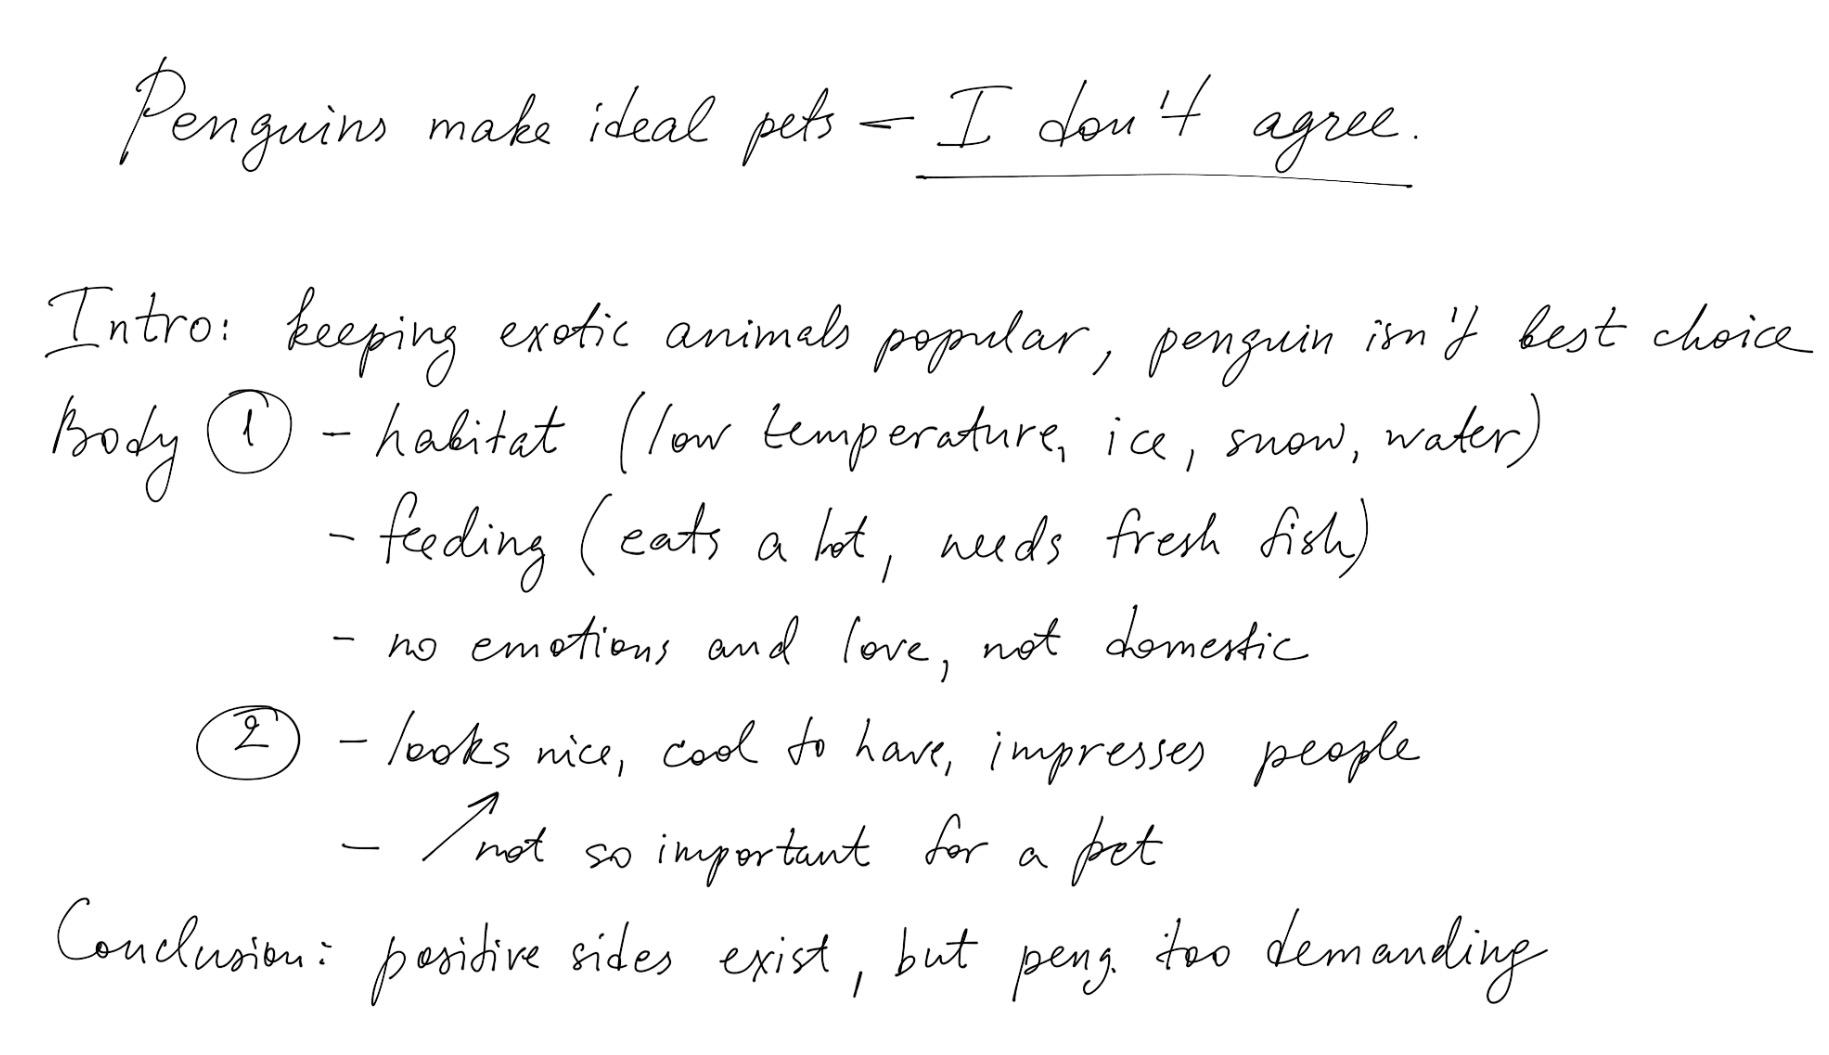 Penguins make ideal pets – I don't agree.
Intro: keeping exotic animals popular, penguin isn't best choice
Body 1 – habitat (low temperature, ice, snow, water)
- feeding (eats a lot, needs fresh fish)
- no emotions and love, not domestic
2 – looks nice, cool to have, impresses people
- ↗ not so important for a pet
Conclusion: positive sides exist, but peng. too demanding